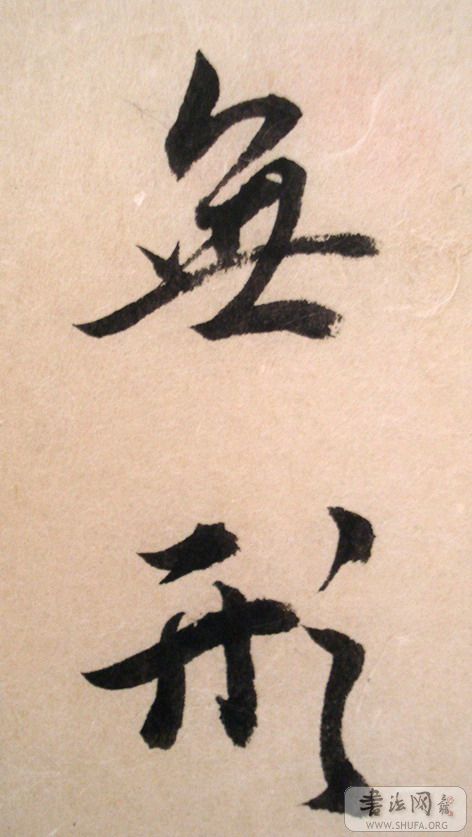 無形
书法网
WWW.SHUFA.ORG